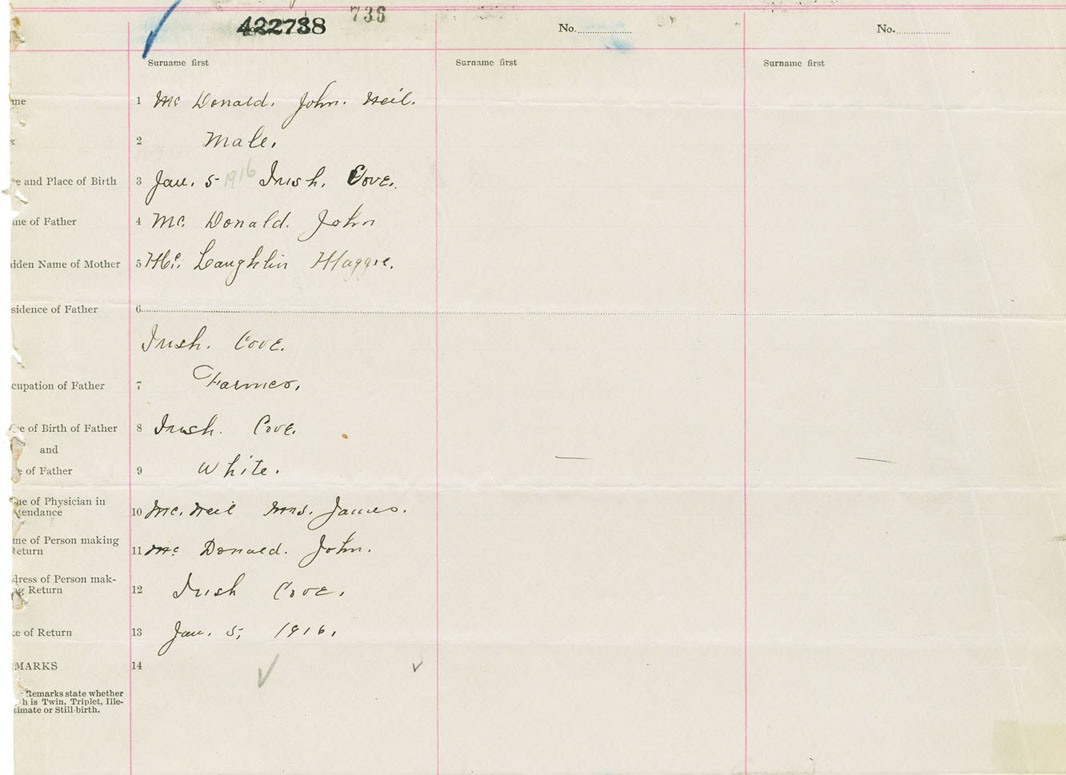 736
422738 No. No.
Surname first Surname first Surname first
me 1 Mc Donald. John. Neil.
2 Male.
e and Place of Birth 3 Jan. 5 1916 Irish. Cove.
me of Father 4 Mc. Donald. John
iden Name of Mother 5 Mc. Laughlin Maggie.
sidence of Father 6
Irish. Cove.
cupation of Father 7 Farmer.
e of Birth of Father 8 Irish. Cove.
and
e of Father 9 White.
me of Physician in
tendance 10 Mc. Neil Mrs. James.
me of Person making
Return 11 Mc Donald. John.
dress of Person mak-
g Return 12 Irish Cove.
te of Return 13 Jan. 5, 1916.
MARKS 14
Remarks state whether
h is Twin, Triplet, Ille-
timate or Still-birth.